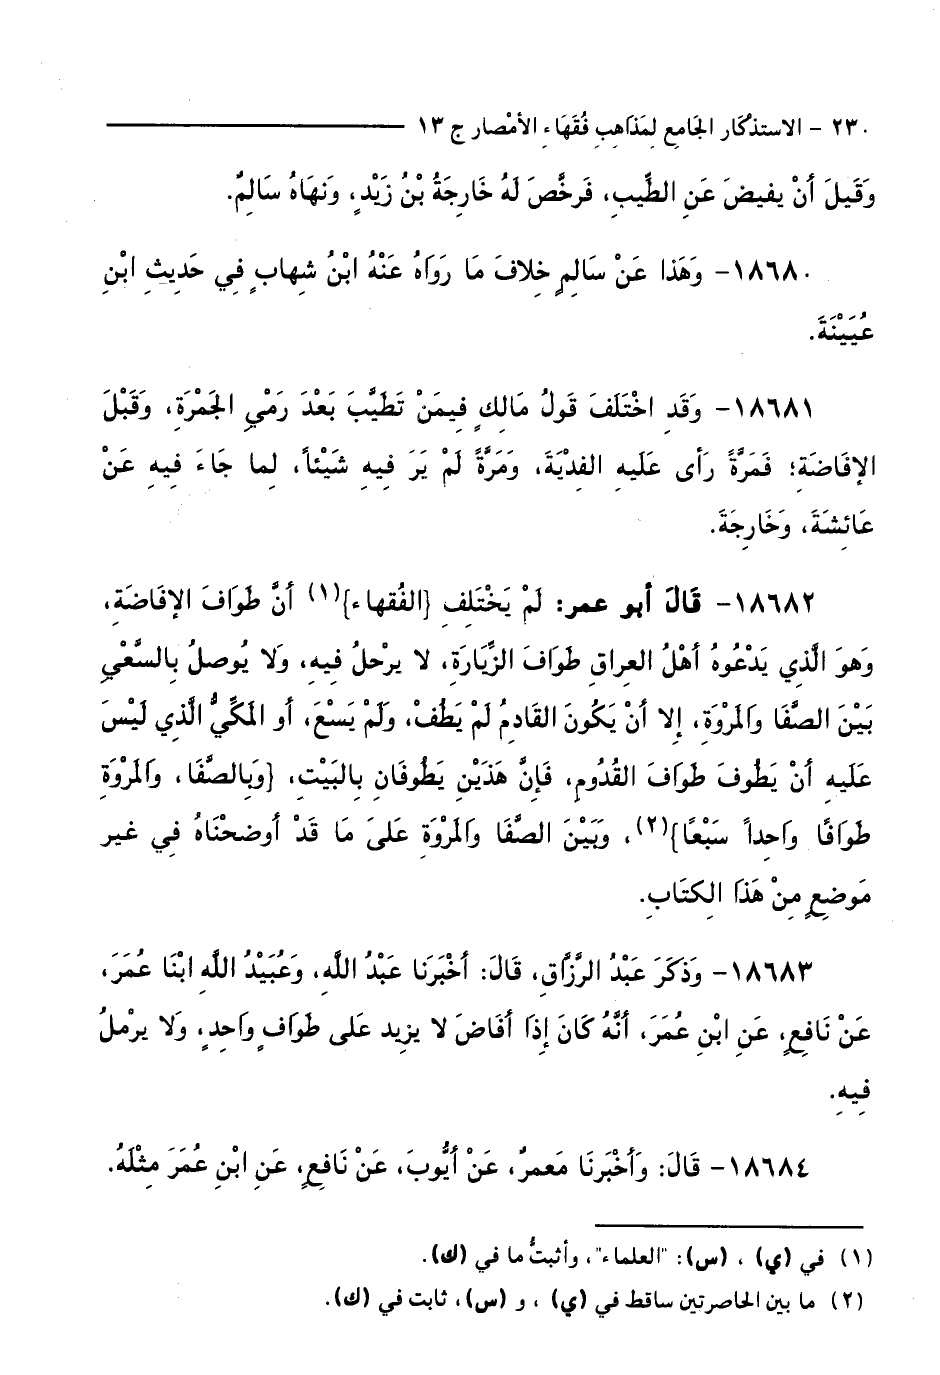 ٢٣٠ - الاستذكار الجامع لمذاهب فُقَهَاء الأمْصار ج ١٣
وَقَيلَ أَنْ يفيضَ عَنِ الطِّيبِ، فَرخَّصَ لَهُ خَارِجَةُ بْنُ زَيْدٍ، وَنهَاهُ سَالِمٌ.
١٨٦٨٠- وَهَذا عَنْ سَالِمٍ خِلافَ مَا رَوَاهُ عَنْهُ ابْنُ شِهابٍ فِي حَدِيثِ ابْنِ
عُيَيْنَةَ.
١٨٦٨١- وَقَدِ اخْتَلَفَ قَولُ مَالِكٍ فِيمَنْ تَطَيَّبَ بَعْدَ رَمْيِ الجَمْرَةِ، وَقَبْلَ
الإفَاضَةِ؛ فَمَرَّةً رَأى عَلَيهِ الفِدْيَةَ، وَمَرَّةً لَمْ يَرَ فِيهِ شَيْئاً، لِما جَاءَ فِيهِ عَنْ
عَائِشَةَ، وَخَارِجَةَ.
١٨٦٨٢- قَالَ أبو عمر: لَمْ يَخْتَلِفِ {الفُقهاء}(١) أنَّ طَوافَ الإفَاضَةِ،
وَهوَ الَّذِي يَدْعُوهُ أهْلُ العِراقِ طَوافَ الزِّيَارَةِ، لا يرْحلُ فِيهِ، وَلا يُوصلُ بِالسَّعْيِ
بَيْنَ الصَّفَا وَالمَرْوَةِ، إلا أنْ يَكُونَ القَادِمُ لَمْ يَطُفْ، وَلَمْ يَسْعَ، أو المَكِّيُّ الَّذِي لَيْسَ
عَلَيهِ أنْ يَطُوفَ طَوافَ القُدُومِ، فَإنَّ هَذَيْنِ يَطُوفَانِ بِالبَيْتِ، {وَبِالصَّفَا، وَالمَرْوَةِ
طَوَافًا وَاحِداً سَبْعًا}(٢)، وَبَيْنَ الصَّفَا وَالمَرْوَةِ عَلىَ مَا قَدْ أوضحْنَاهُ فِي غَيرِ
مَوضِعٍ مِنْ هَذَا الكِتَابِ.
١٨٦٨٣- وَذكَرَ عَبْدُ الرَّزَّاقِ، قَالَ: أخْبَرَنا عَبْدُ اللَّهِ، وَعُبَيْدُ اللَّهِ ابْنَا عمَرَ،
عَنْ نَافِعٍ، عَنِ ابْنِ عُمَرَ، أنَّهُ كَانَ إذَا أفَاضَ لا يزِيد عَلى طَوَافٍ وَاحِدٍ، وَلا يرْملُ
فِيهِ.
١٨٦٨٤- قَالَ: وَأخْبَرنَا مَعمرٌ، عَنْ أيُّوبَ، عَنْ نَافِعٍ، عَنِ ابْنِ عُمَرَ مِثْلَهُ.
(١) في (ي) ، (س): "العلماء"، وأثبتُّ ما في (ك).
(٢) ما بين الحاصرتين ساقط في (ي) ، و (س)، ثابت في (ك).